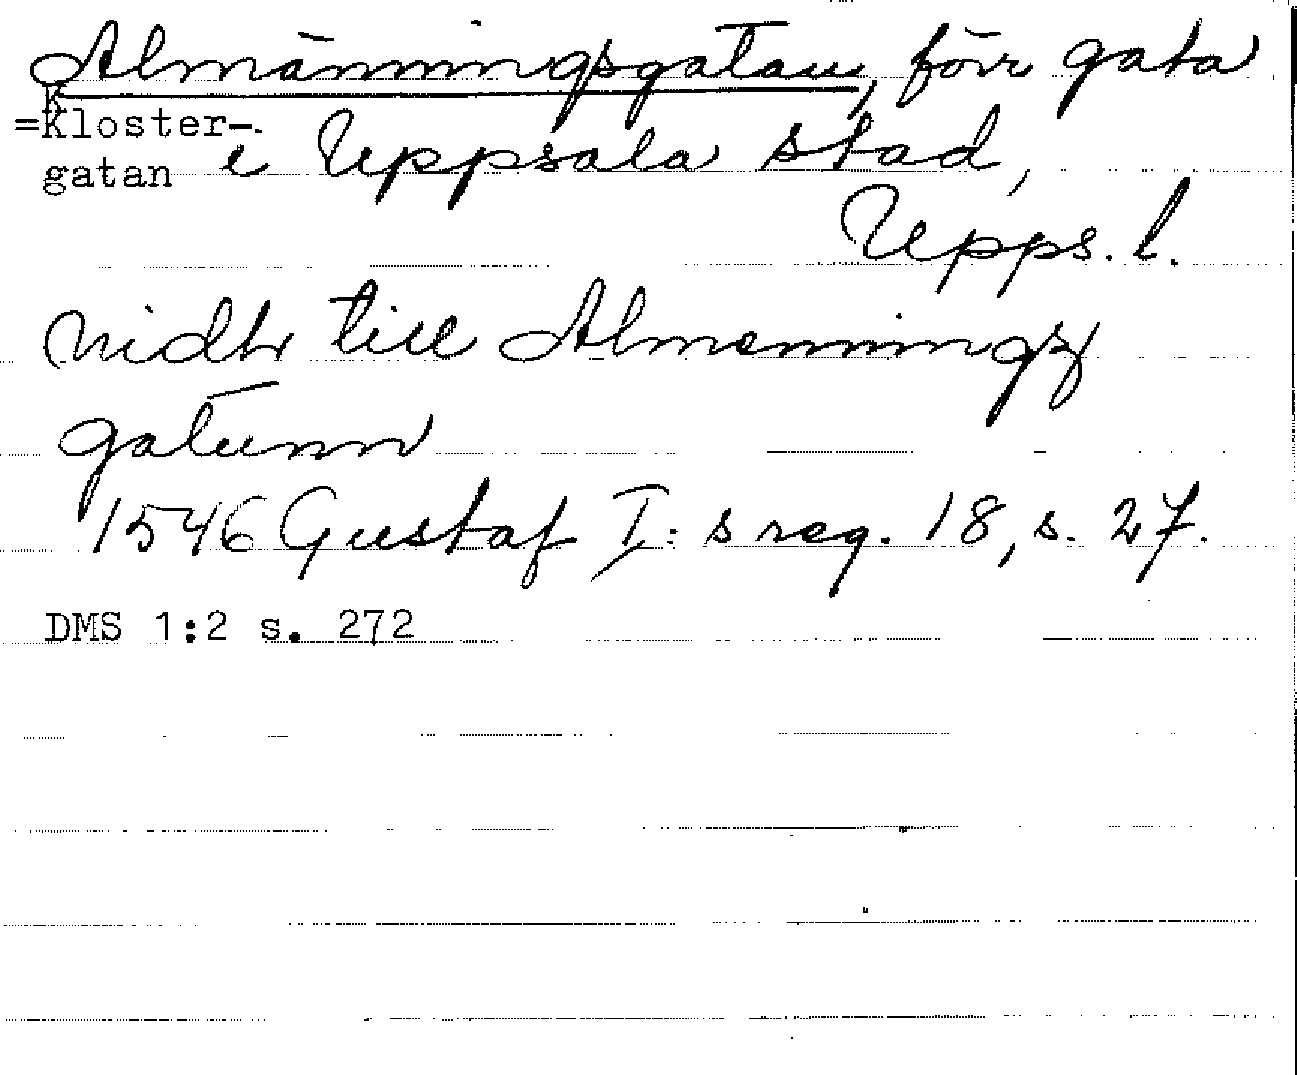 Almänningsgatan, förr gata
=Kloster-
gatan i Uppsala stad,
Upps. l.
nidhr till Almenningz
gatunn
1546 Gustaf I:s reg. 18, s. 27.
DMS 1:2 s. 272